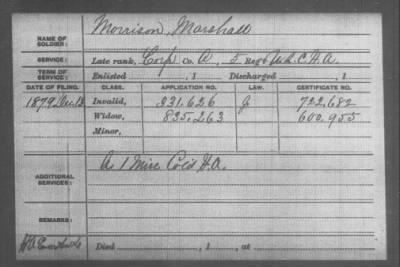 NAME OF SOLDIER: Morrison, Marshall
SERVICE: Late rank, Corp Co. A, 5 Reg't U.S.C.H.A.
TERM OF SERVICE: Enlisted , 1 Discharged , 1
DATE OF FILING. CLASS. APPLICATION NO. LAW. CERTIFICATE NO.
1879 Dec 13 Invalid, 331.626 G 722.682
Widow, 835.263 600.955
Minor,
ADDITIONAL SERVICES: A 1 Miss Col'd H.A.
REMARKS:
Died , 1 , at